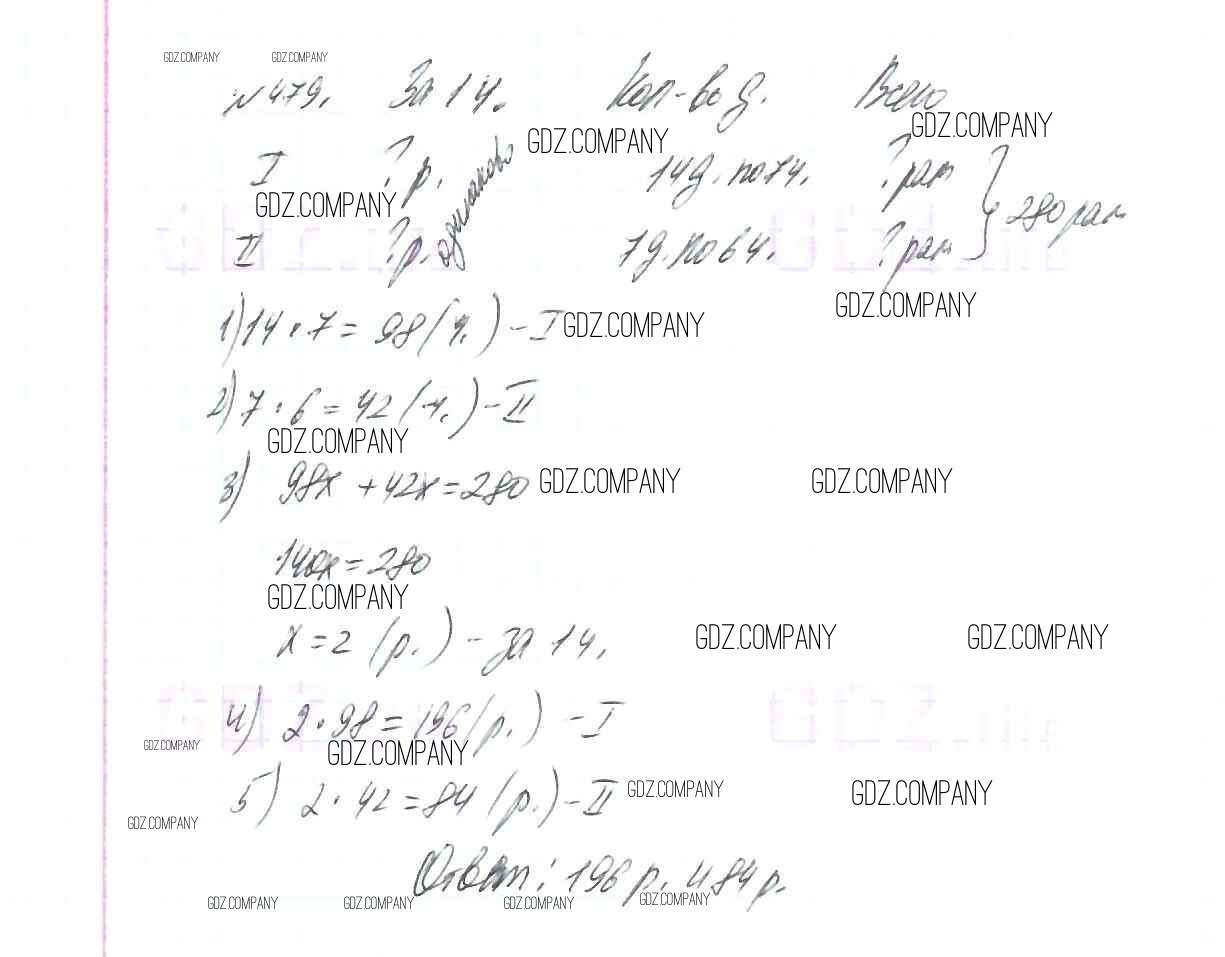 GDZ.COMPANY GDZ.COMPANY
№479. За 1ч. Кол-во д. Всего
GDZ.COMPANY GDZ.COMPANY
I ? р. одинаково 14д. по 7ч. ? рам } 280 рам
GDZ.COMPANY
II ? р. 7д. по 6ч. ? рам
GDZ.COMPANY
1) 14 • 7 = 98 (ч.) - I GDZ.COMPANY
2) 7 • 6 = 42 (ч.) - II
GDZ.COMPANY
3) 98x + 42x = 280 GDZ.COMPANY GDZ.COMPANY
140x = 280
GDZ.COMPANY
x = 2 (р.) - за 1ч. GDZ.COMPANY GDZ.COMPANY
4) 2 • 98 = 196 (р.) - I
GDZ.COMPANY GDZ.COMPANY
5) 2 • 42 = 84 (р.) - II GDZ.COMPANY GDZ.COMPANY
GDZ.COMPANY
Ответ: 196 р. и 84 р.
GDZ.COMPANY GDZ.COMPANY GDZ.COMPANY GDZ.COMPANY